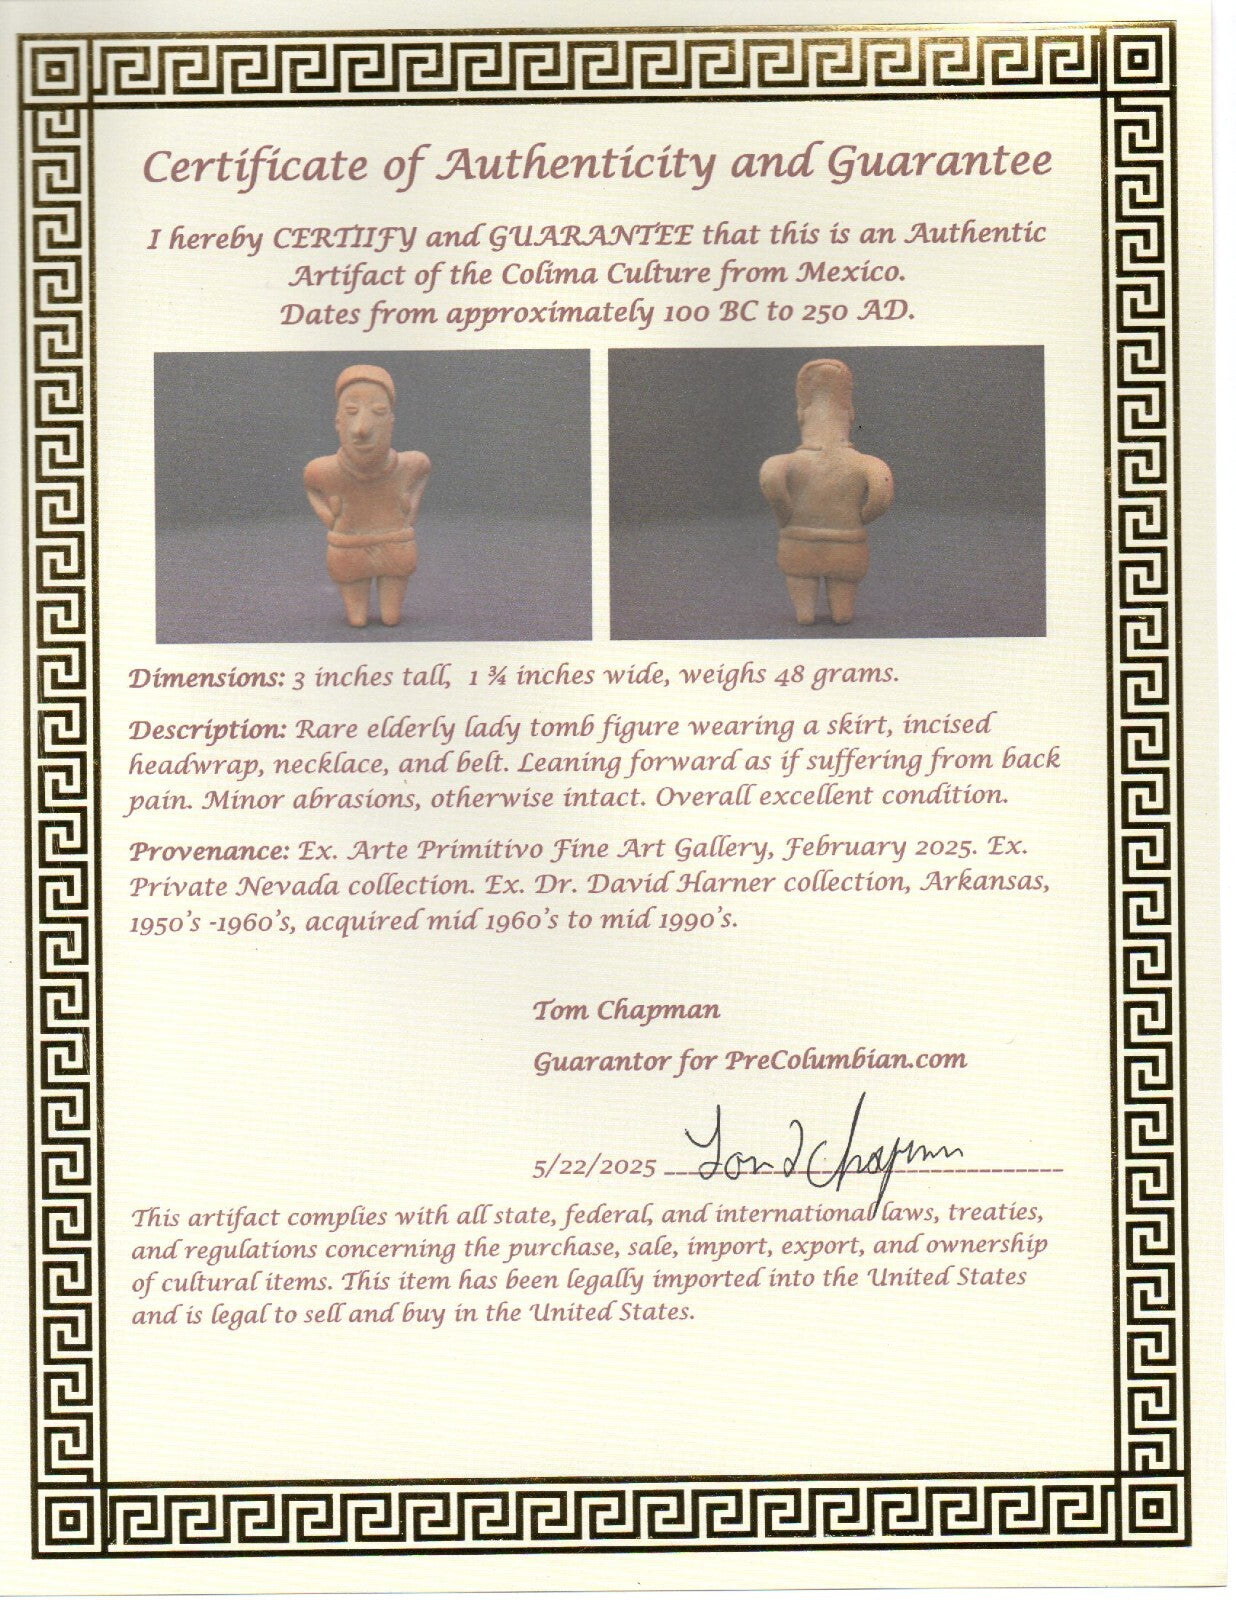 Certificate of Authenticity and Guarantee
I hereby CERTIIFY and GUARANTEE that this is an Authentic
Artifact of the Colima Culture from Mexico.
Dates from approximately 100 BC to 250 AD.
Dimensions: 3 inches tall,  1 ¾ inches wide, weighs 48 grams.
Description: Rare elderly lady tomb figure wearing a skirt, incised
headwrap, necklace, and belt. Leaning forward as if suffering from back
pain. Minor abrasions, otherwise intact. Overall excellent condition.
Provenance: Ex. Arte Primitivo Fine Art Gallery, February 2025. Ex.
Private Nevada collection. Ex. Dr. David Harner collection, Arkansas,
1950's -1960's, acquired mid 1960's to mid 1990's.
Tom Chapman
Guarantor for PreColumbian.com
5/22/2025 Tom Chapman
This artifact complies with all state, federal, and international laws, treaties,
and regulations concerning the purchase, sale, import, export, and ownership
of cultural items. This item has been legally imported into the United States
and is legal to sell and buy in the United States.